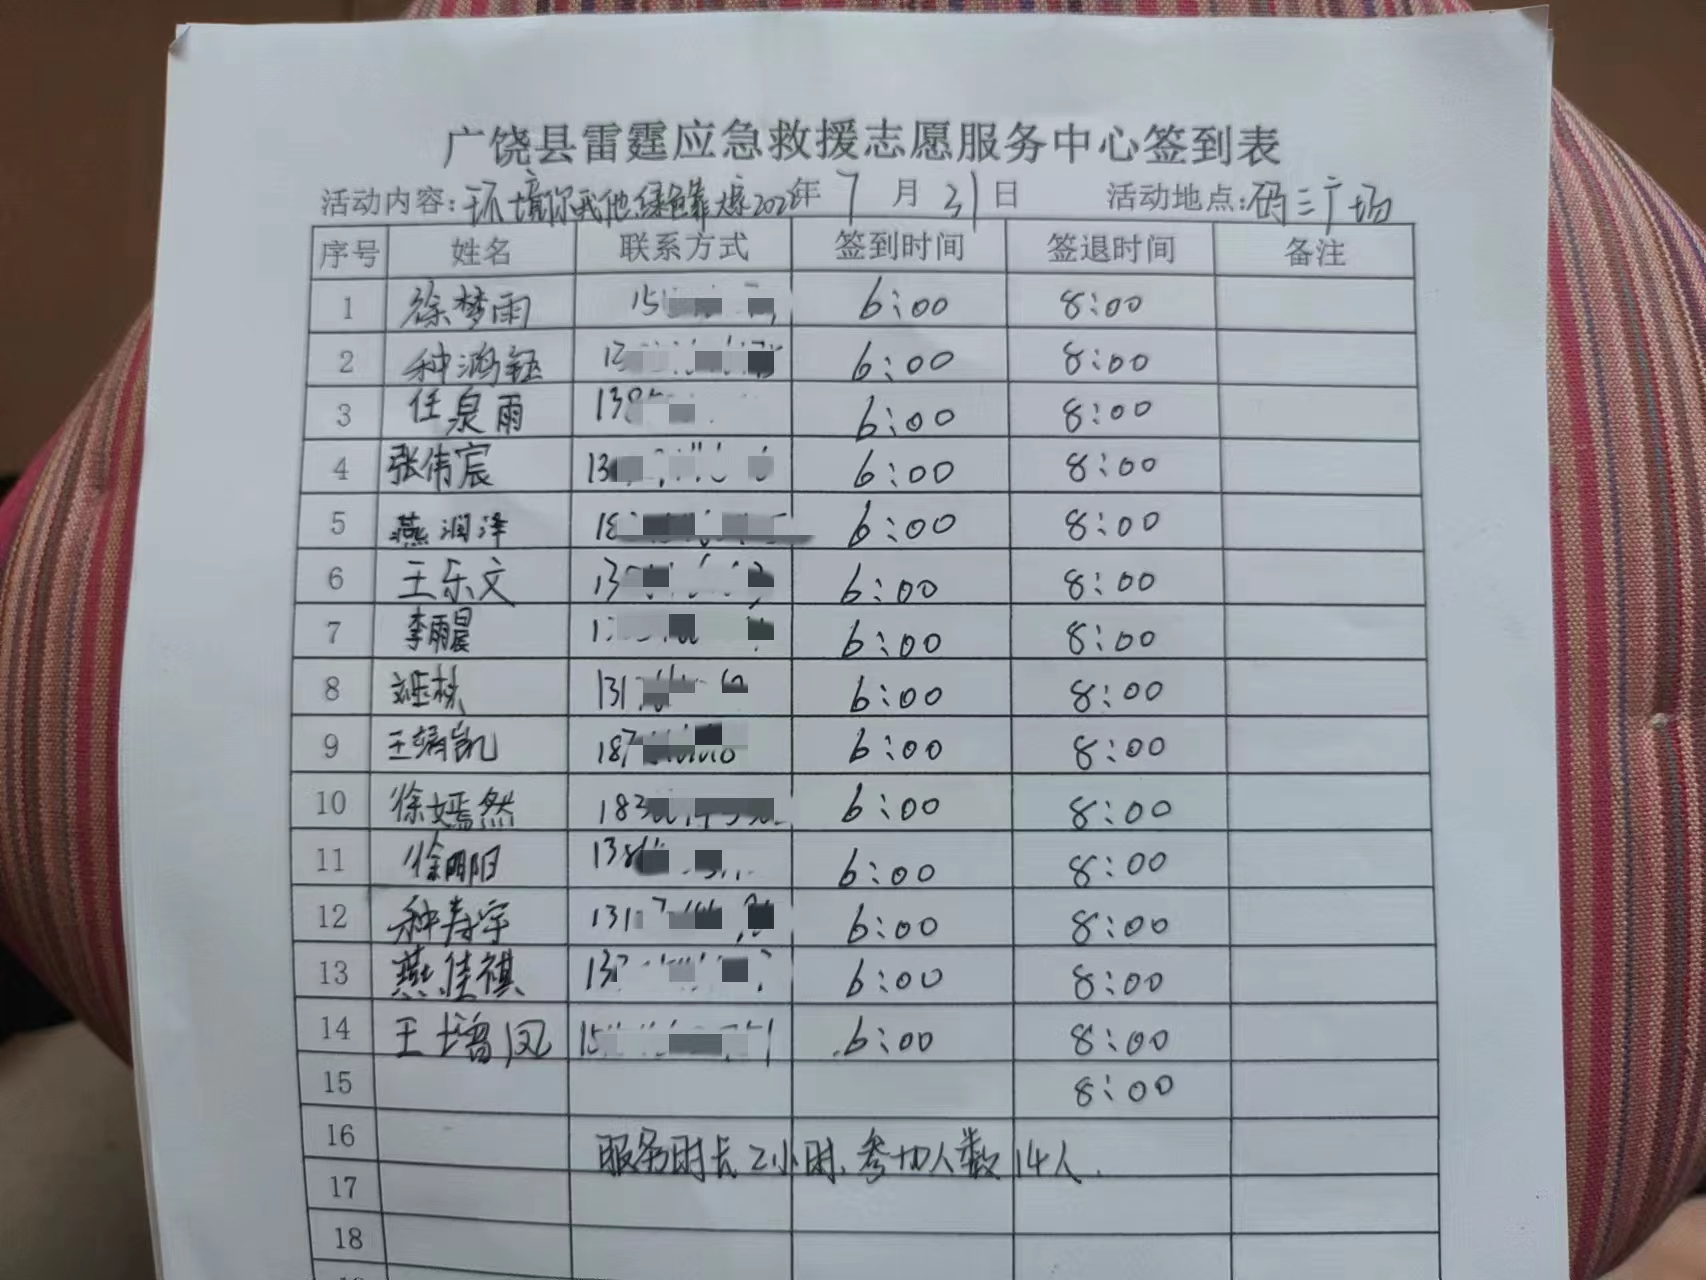 广饶县雷霆应急救援志愿服务中心签到表
活动内容:环境你我他,绿色靠大家202 年 7 月 31 日 活动地点:码三广场
序号 姓名 联系方式 签到时间 签退时间 备注
1 徐梦雨 15 6:00 8:00
2 种鸿钰 6:00 8:00
3 任泉雨 138 6:00 8:00
4 张伟宸 13 6:00 8:00
5 燕润泽 18 6:00 8:00
6 王乐文 13 6:00 8:00
7 李雨晨 6:00 8:00
8 131 6:00 8:00
9 王 凯 187 6:00 8:00
10 徐嫣然 183 6:00 8:00
11 徐明阳 138 6:00 8:00
12 种寿宇 131 6:00 8:00
13 燕佳祺 13 6:00 8:00
14 王增凤 15 6:00 8:00
15 8:00
16 服务时长2小时,参加人数14人.
17
18